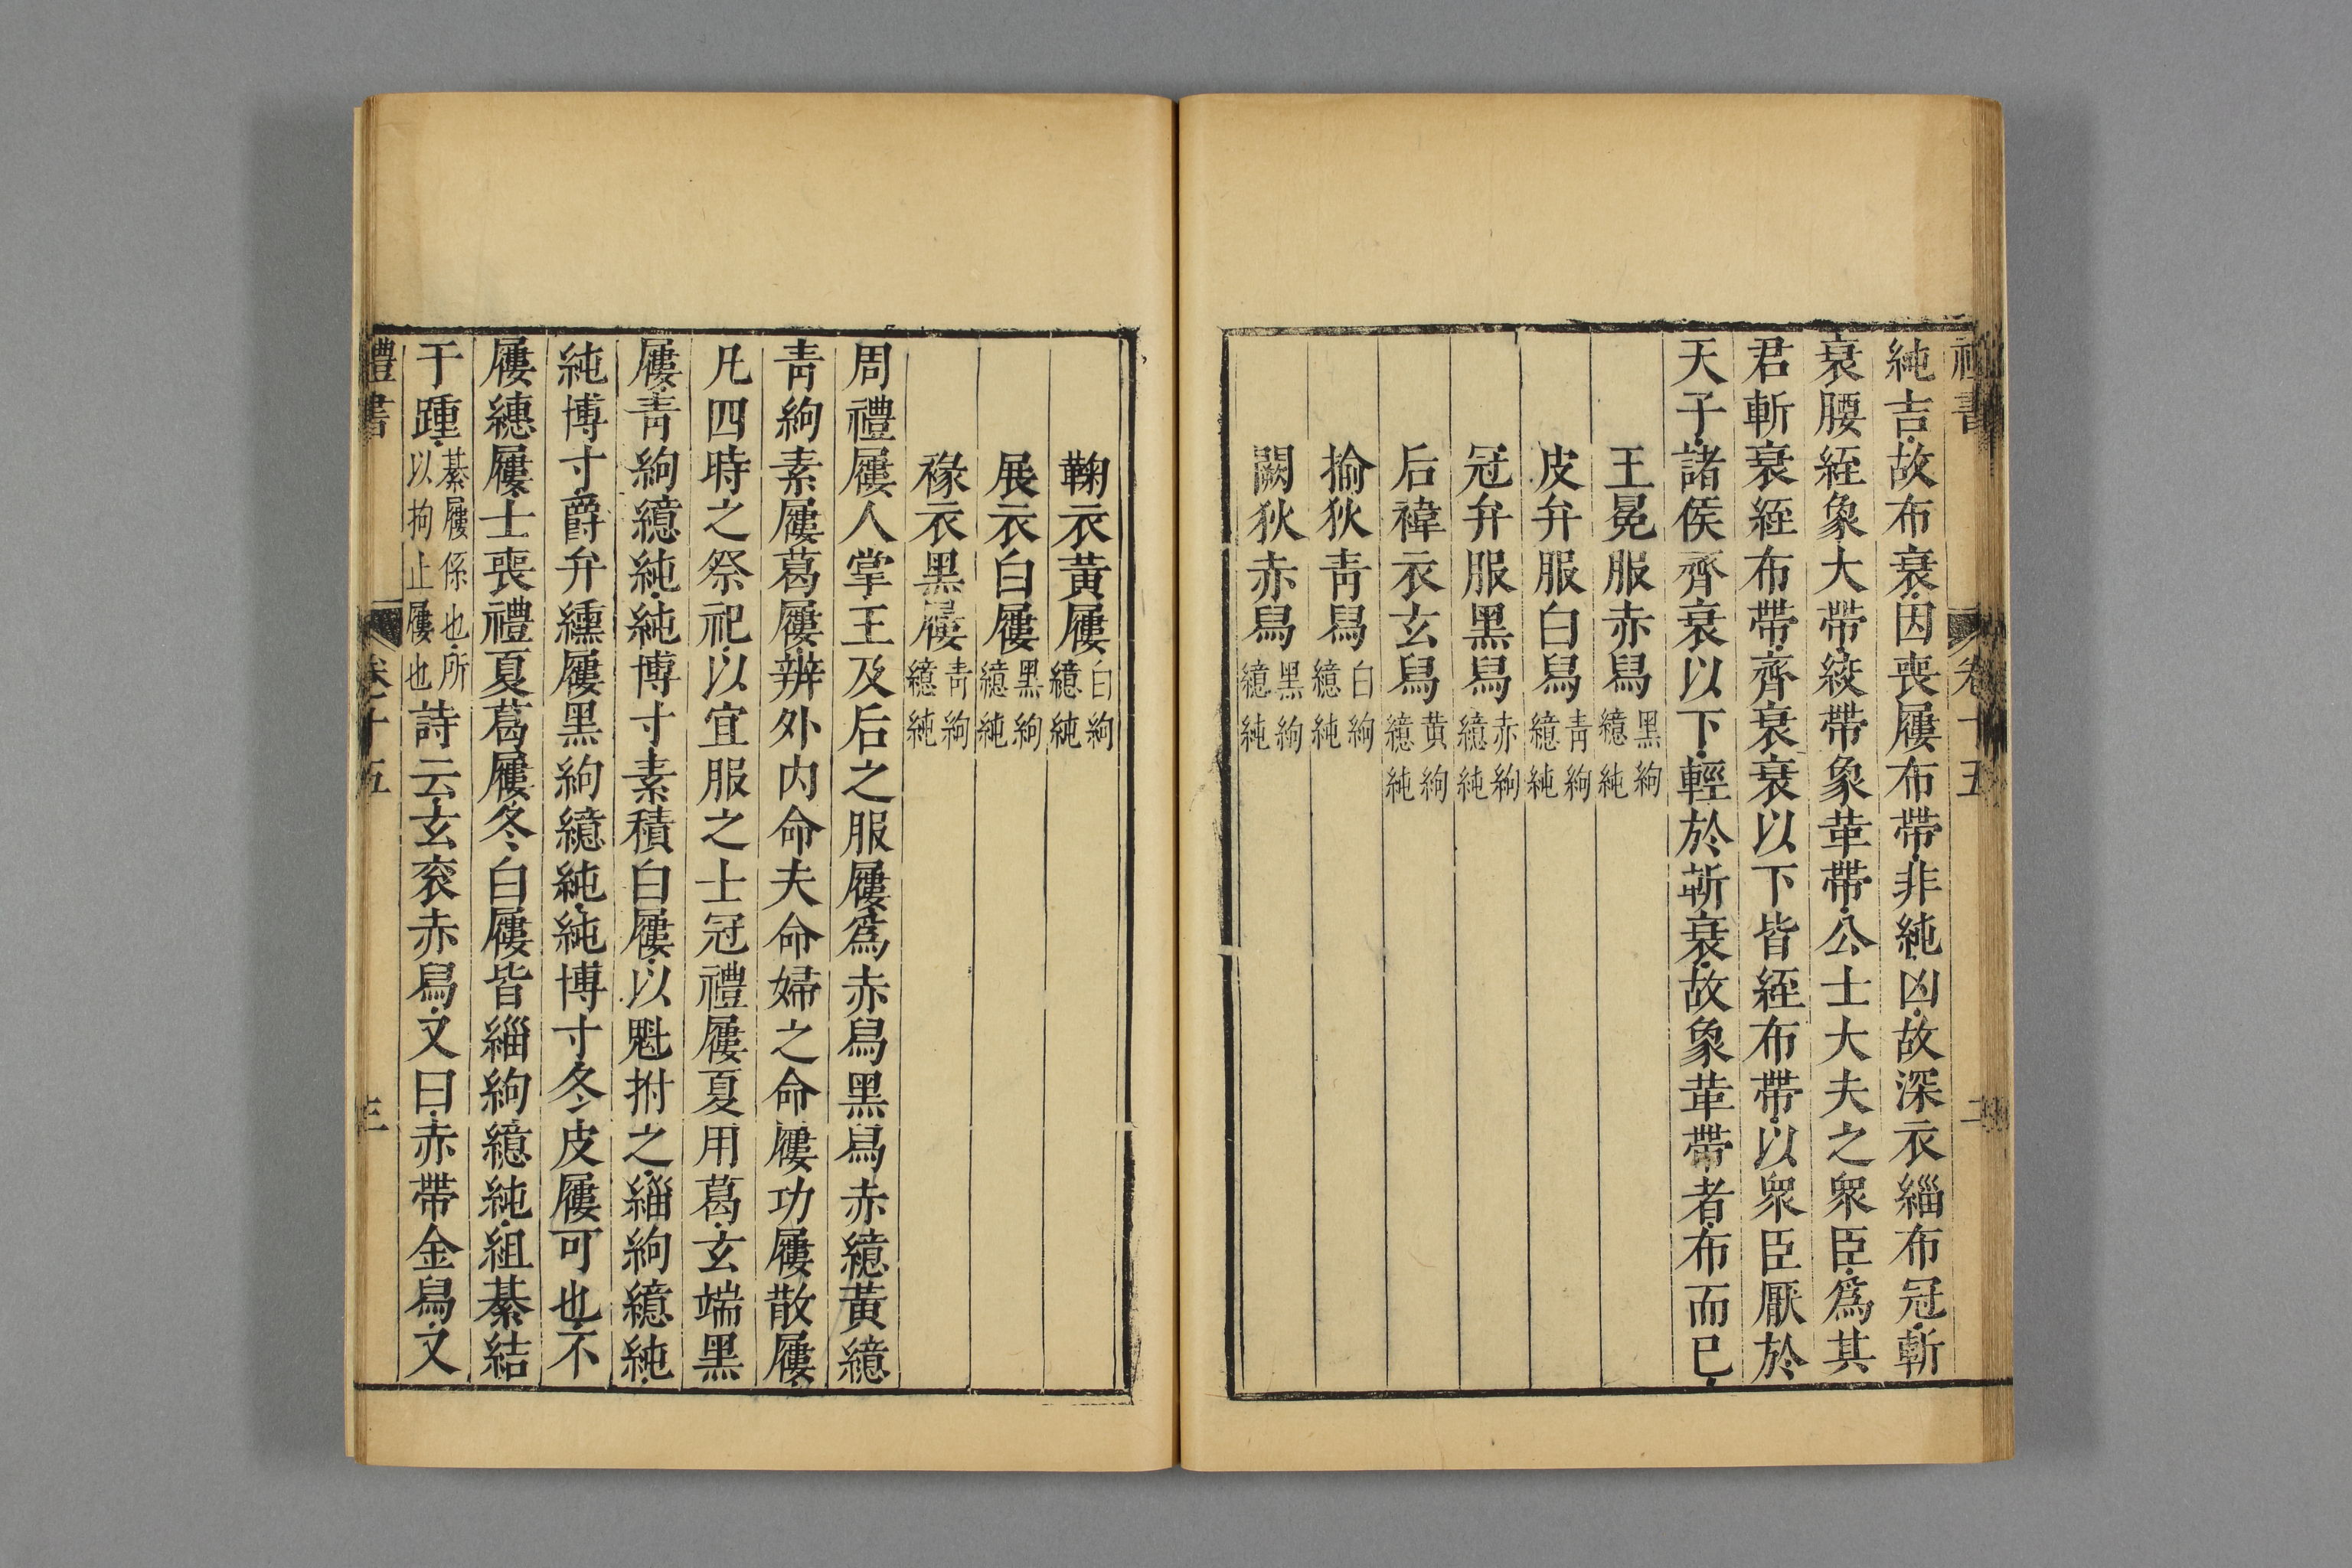 禮書 卷十五 二
純吉故布衰因喪屨布帶非純凶故深衣緇布冠斬
衰腰絰象大帶絞帶象革帶公士大夫之眾臣為其
君斬衰絰布帶齊衰衰以下皆絰布帶以眾臣厭於
天子諸侯齊衰以下輕於斬衰故象革帶者布而已
王冕服赤舄黑絇繶純
皮弁服白舄青絇繶純
冠弁服黑舄赤絇繶純
后褘衣玄舄黃絇繶純
揄狄青舄白絇繶純
闕狄赤舄黑絇繶純
鞠衣黃屨白絇繶純
展衣白屨黑絇繶純
褖衣黑屨青絇繶純
周禮屨人掌王及后之服屨為赤舄黑舄赤繶黃繶
青絇素屨葛屨辨外内命夫命婦之命屨功屨散屨
凡四時之祭祀以宜服之士冠禮屨夏用葛玄端黑
屨青絇繶純純博寸素積白屨以魁拊之緇絇繶純
純博寸爵弁纁屨黑絇繶純純博寸冬皮屨可也不
屨繐屨士喪禮夏葛屨冬白屨皆緇絇繶純組綦結
于踵綦屨係也所以拘止屨也詩云玄衮赤舄又曰赤帶金舄又
禮書 卷十五 三